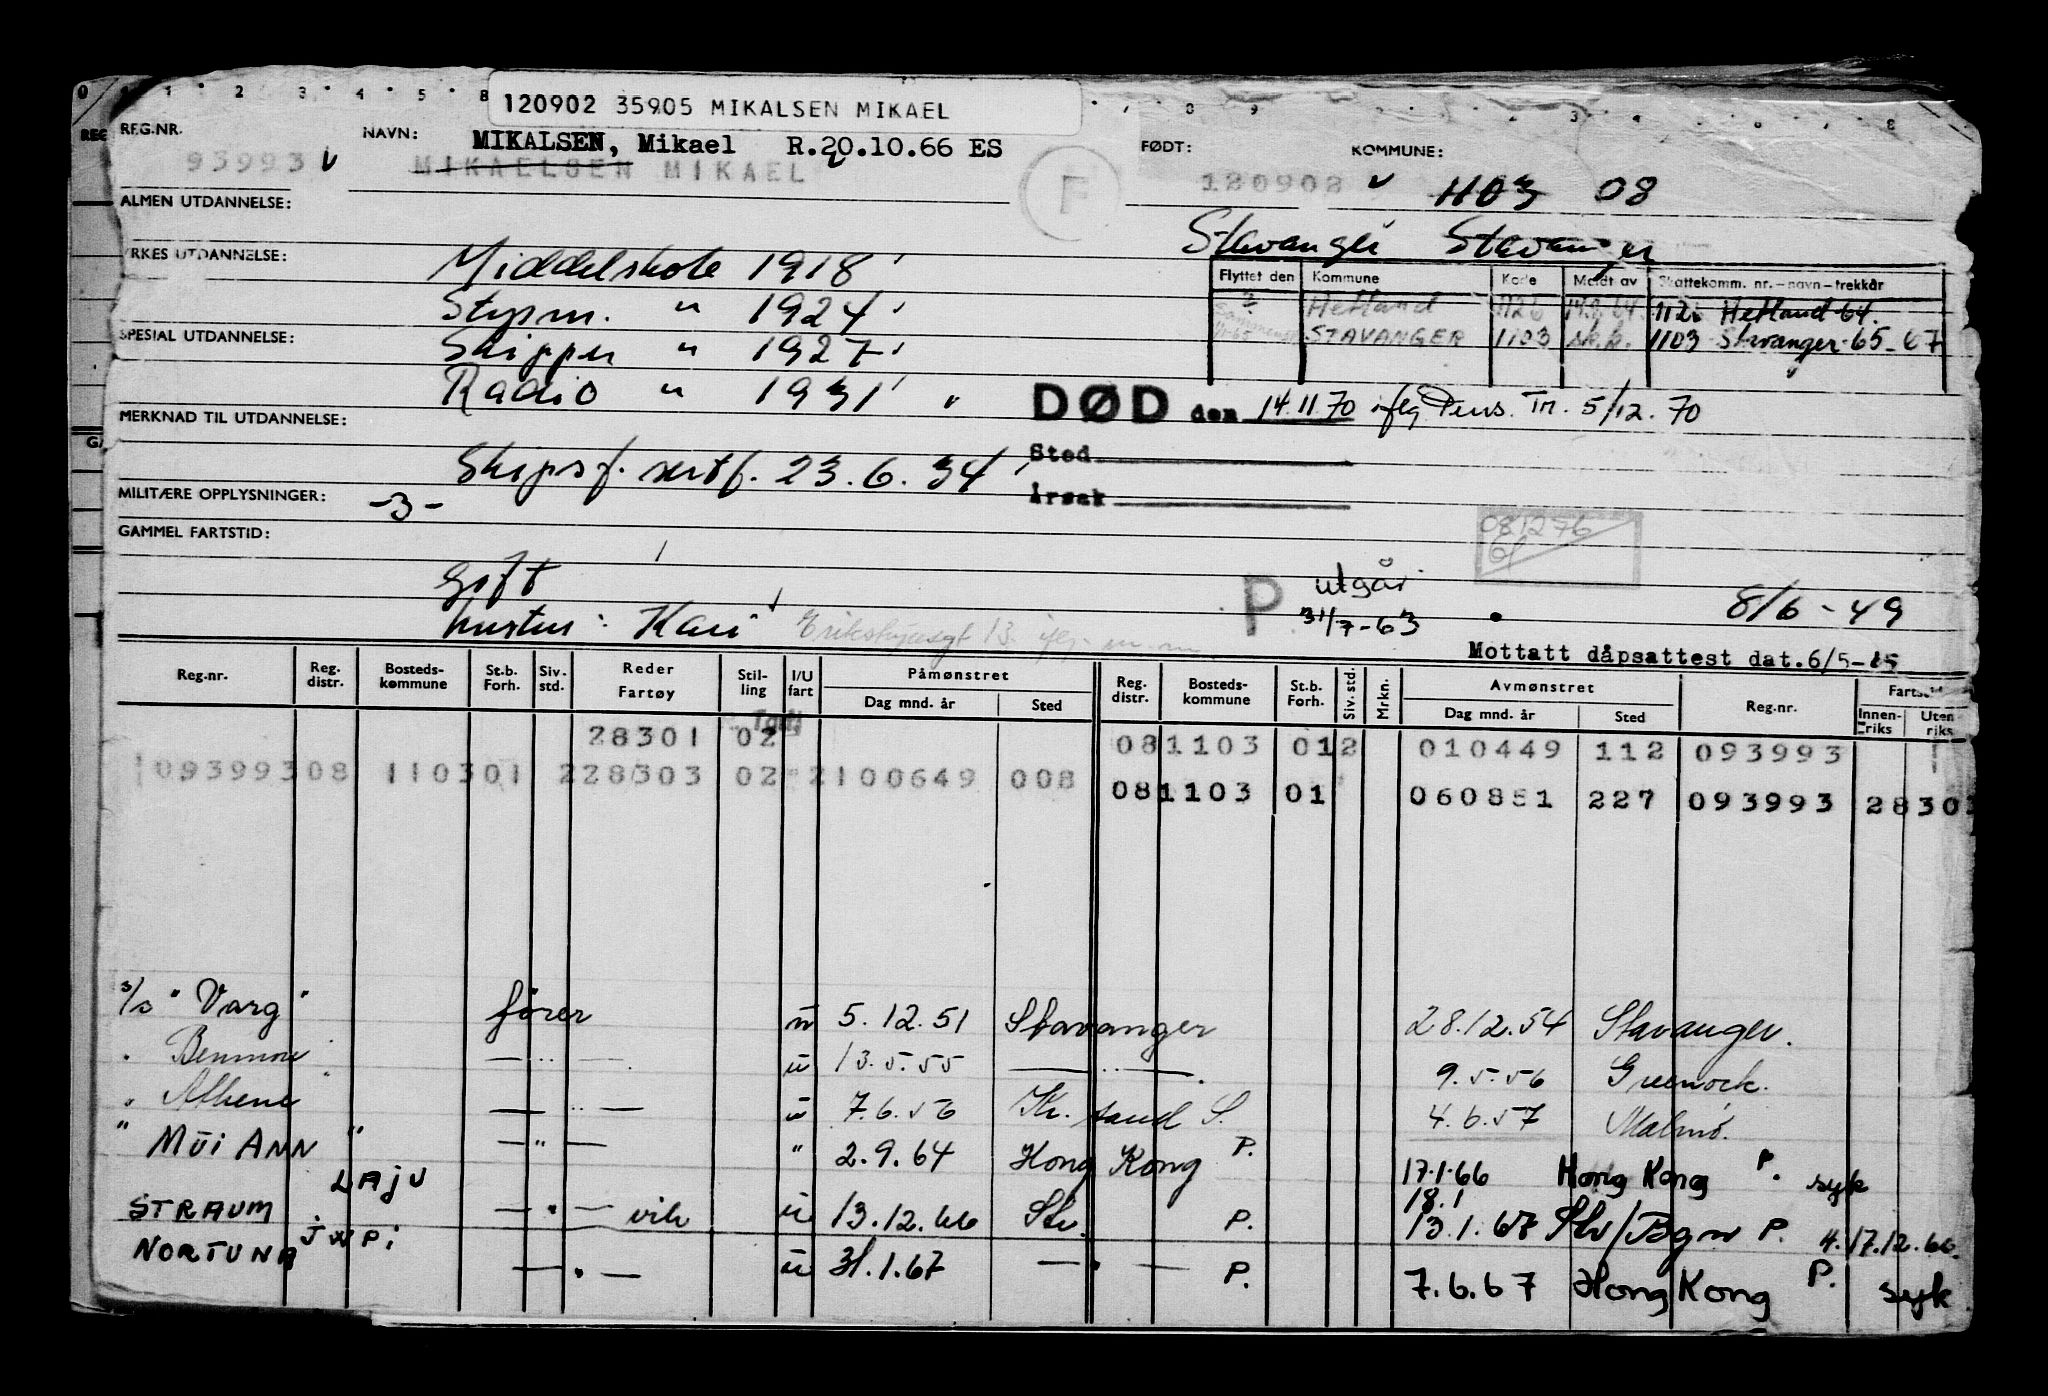 120902 35905 MIKALSEN MIKAEL
REG.NR. NAVN: MIKALSEN, Mikael R.20.10.66 ES FØDT: KOMMUNE:
93993 v MIKAELSEN MIKAEL F 120902 v 1103 08
ALMEN UTDANNELSE:
Stavanger Stavanger
YRKES UTDANNELSE: Middelskole 1918
Flyttet den Kommune Kode Meldt av Skattekomm. nr.-navn-trekkår
? Hetland 1126 14.2.64 1126 Hetland 64.
Styrm. " 1924
STAVANGER 1103 sk.k. 1103 Stavanger 65-67
SPESIAL UTDANNELSE: Skipper " 1927
Radio " 1931 "
DØD den 14.11.70 iflg Pens. Tr. 5/12.70
MERKNAD TIL UTDANNELSE:
Sted
Skipsf. sertf. 23.6.34
Årsak
MILITÆRE OPPLYSNINGER: -3-
081276
GAMMEL FARTSTID:
Gift
P utgår 31/7-63 8/6-49
hustru: Kari
Mottatt dåpsattest dat.6/5-15
Reg.nr. Reg. distr. Bosteds-kommune St.b. Forh. Siv. std. Reder Fartøy Stilling I/U fart Påmønstret Dag mnd. år Sted Reg. distr. Bosteds-kommune St.b. Forh. Siv. std. Mrkn. Avmønstret Dag mnd. år Sted Reg.nr. Fartstid Innen-riks Uten-riks
28301 02 081103 012 010449 112 093993
109399308 110301 228303 02 2100649 008
081103 01 060851 227 093993 28303
s/s "Varg" fører u 5.12.51 Stavanger 28.12.54 Stavanger.
" Benmore —"— u 13.5.55 —"— 9.5.56 Greenock.
" Athene —"— u 7.6.56 Kr. sand S. 4.6.57 Malmø.
" MUI ANN " —"— " 2.9.64 Hong Kong P. 17.1.66 Hong Kong P. syk
LAJU 18.1
STRAUM —"— vik u 13.12.66 Stv. P. 13.1.67 Stv/Bgn P. 4.17.12.66.
JXPI
NORTUNA —"— u 31.1.67 —"— P. 7.6.67 Hong Kong P. syk